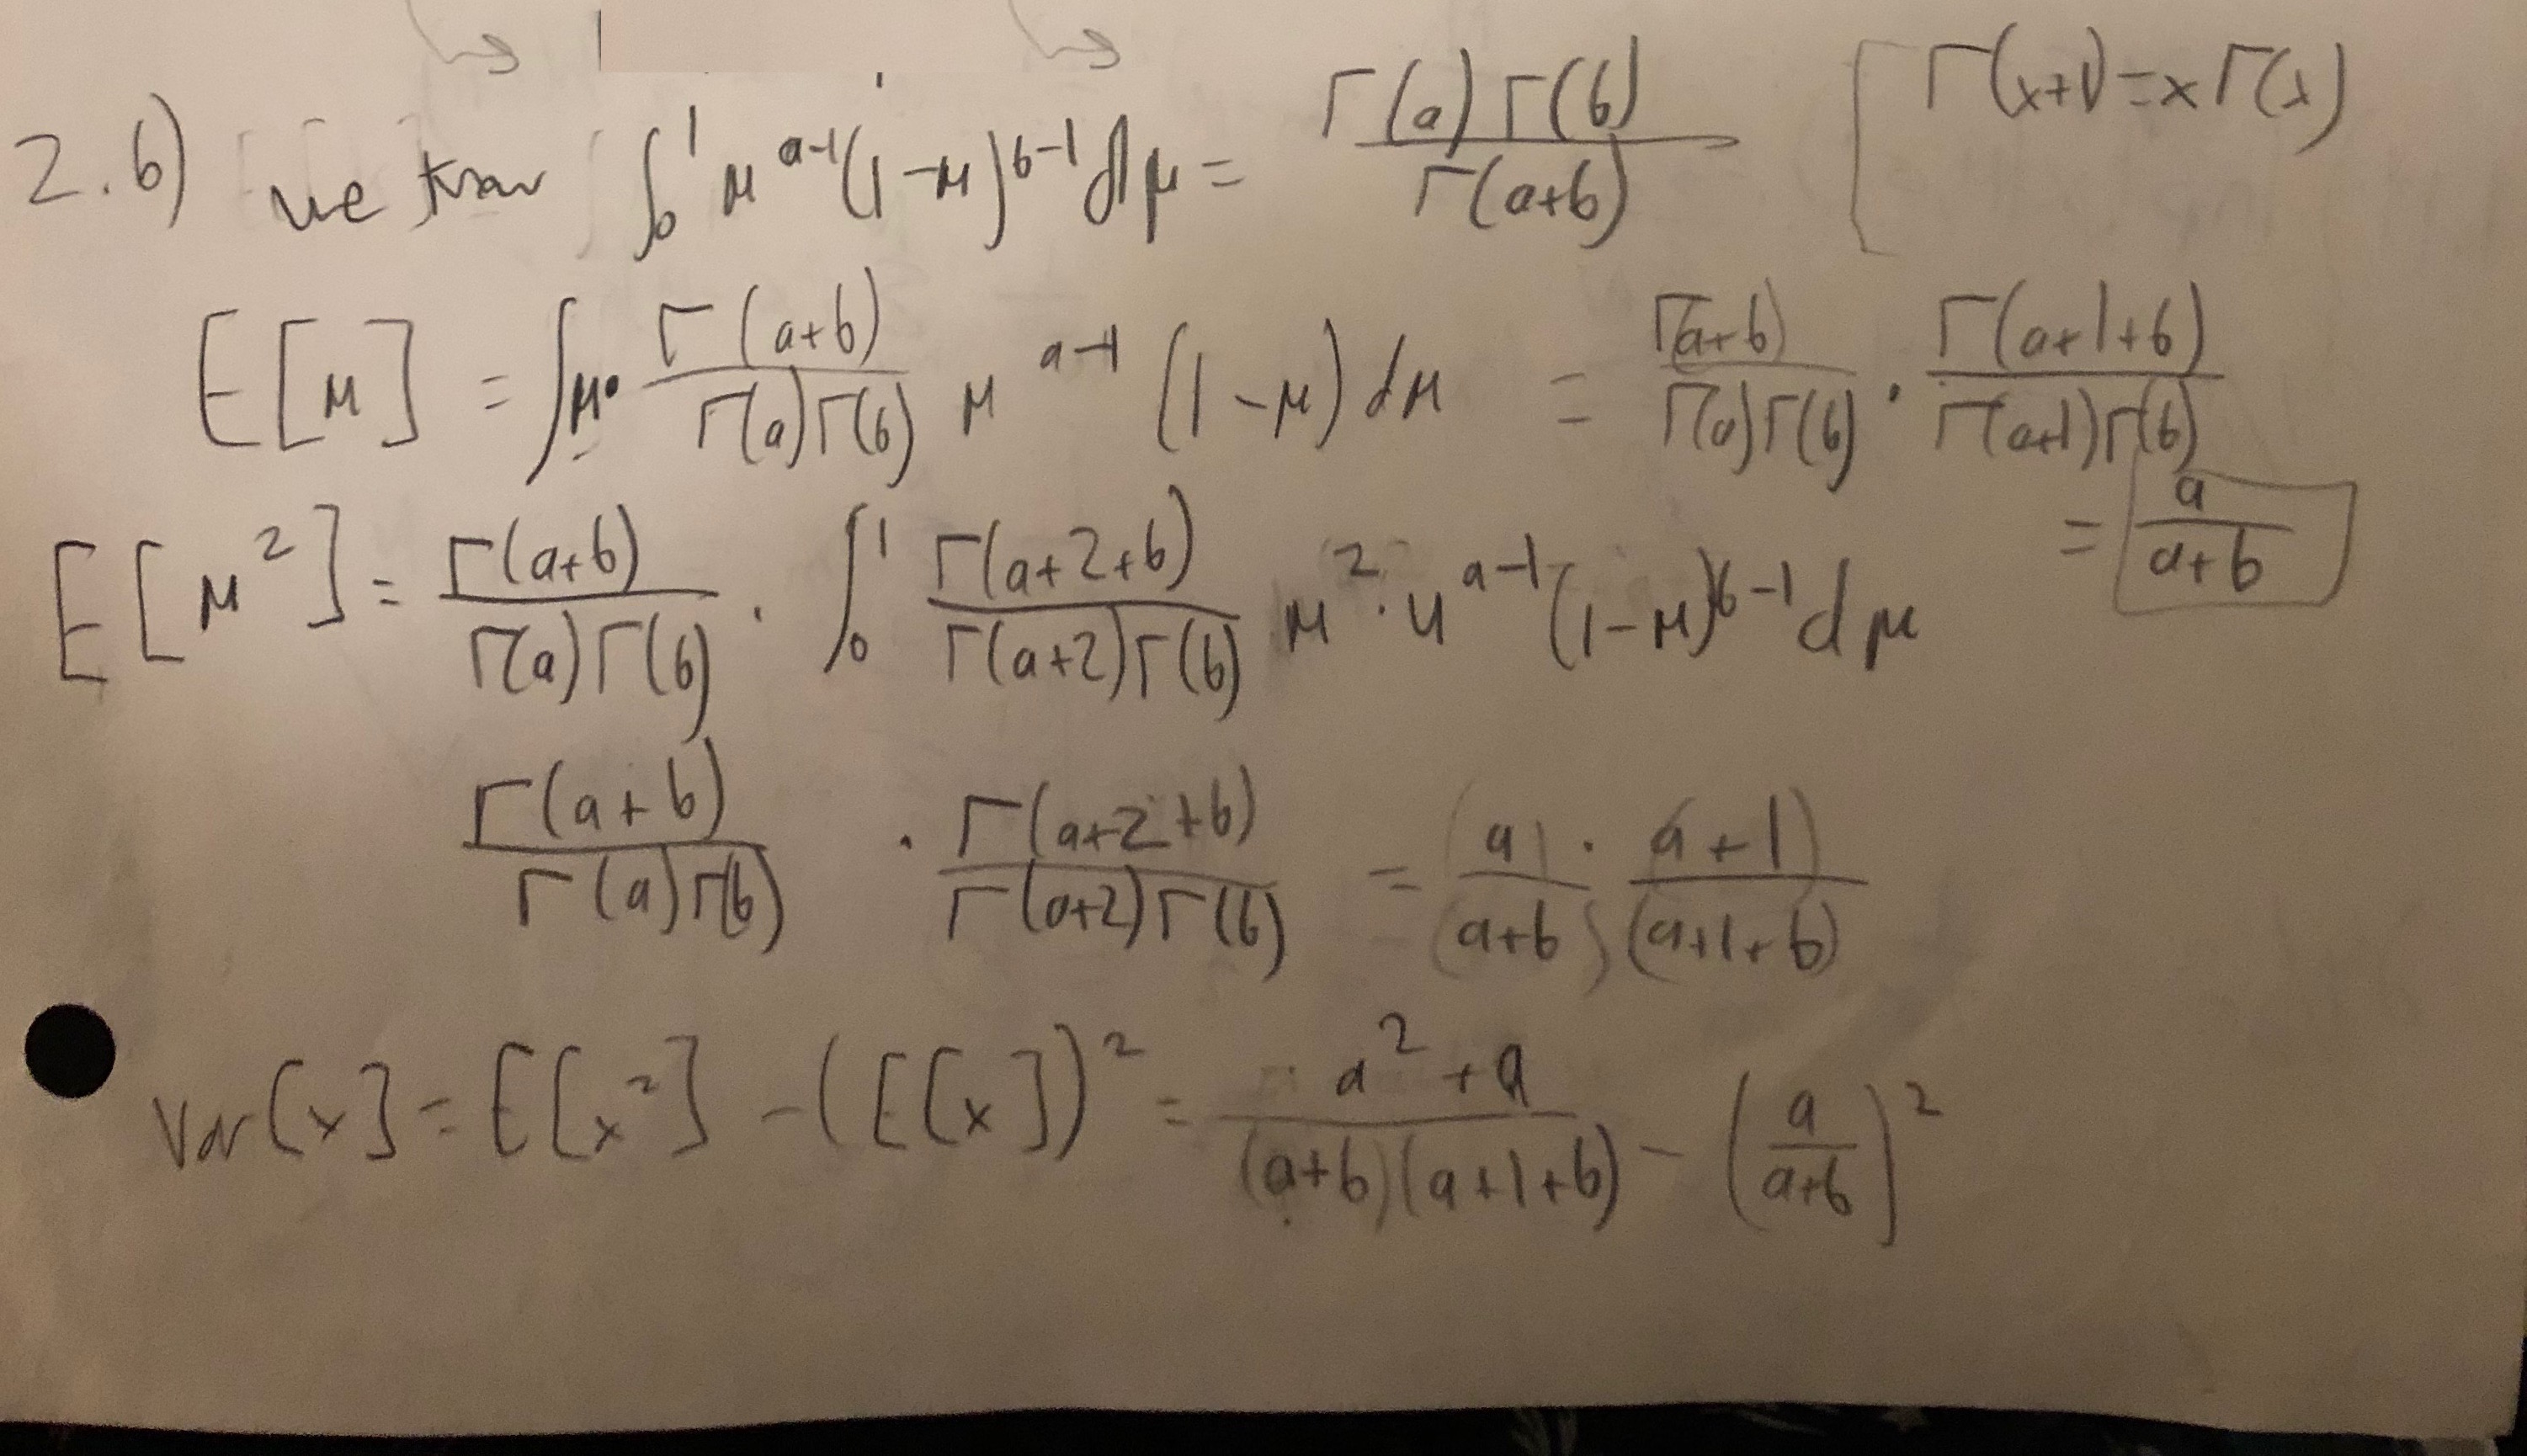 2.6) we know ∫₀¹ μ^(a-1) (1-μ)^(b-1) dμ = Γ(a)Γ(b) / Γ(a+b) [ Γ(x+1) = xΓ(x)
E[μ] = ∫ μ · Γ(a+b) / Γ(a)Γ(b) μ^(a-1) (1-μ) dμ = Γ(a+b) / Γ(a)Γ(b) · Γ(a+1+b) / Γ(a+1)Γ(b)
= a / a+b
E[μ²] = Γ(a+b) / Γ(a)Γ(b) · ∫₀¹ Γ(a+2+b) / Γ(a+2)Γ(b) μ² · μ^(a-1) (1-μ)^(b-1) dμ
Γ(a+b) / Γ(a)Γ(b) · Γ(a+2+b) / Γ(a+2)Γ(b) = (a) / (a+b) · (a+1) / (a+1+b)
Var[x] = E[x²] - (E[x])² = a²+a / (a+b)(a+1+b) - (a / a+b)²